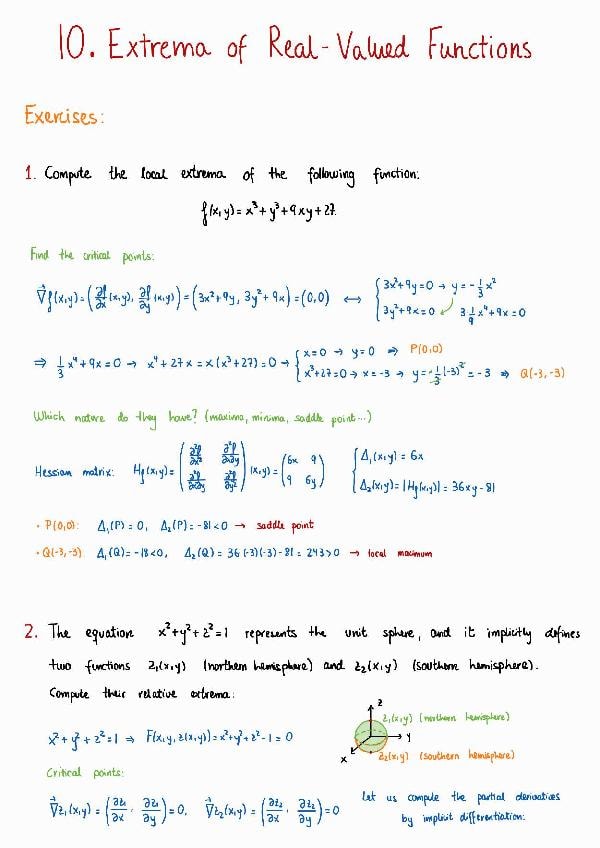 10. Extrema of Real-Valued Functions
Exercises:
1. Compute the local extrema of the following function:
f(x,y) = x³ + y³ + 9xy + 27.
Find the critical points:
∇⃗f(x,y) = (∂f/∂x (x,y), ∂f/∂y (x,y)) = (3x² + 9y, 3y² + 9x) = (0,0) ⟷ { 3x² + 9y = 0 → y = -1/3 x²
3y² + 9x = 0 ↙ 3 1/9 x⁴ + 9x = 0
⇒ 1/3 x⁴ + 9x = 0 → x⁴ + 27x = x(x³ + 27) = 0 → { x = 0 → y = 0 ⇒ P(0,0)
x³ + 27 = 0 → x = -3 → y = -1/3 (-3)² = -3 ⇒ Q(-3,-3)
Which nature do they have? (maxima, minima, saddle point...)
Hessian matrix: Hf(x,y) = ( ∂²f/∂x² ∂²f/∂x∂y ; ∂²f/∂x∂y ∂²f/∂y² ) (x,y) = ( 6x 9 ; 9 6y ) { Δ₁(x,y) = 6x
Δ₂(x,y) = |Hf(x,y)| = 36xy - 81
• P(0,0): Δ₁(P) = 0, Δ₂(P) = -81 < 0 → saddle point
• Q(-3,-3) Δ₁(Q) = -18 < 0, Δ₂(Q) = 36(-3)(-3) - 81 = 243 > 0 → local maximum
2. The equation x² + y² + z² = 1 represents the unit sphere, and it implicitly defines
two functions z₁(x,y) (northern hemisphere) and z₂(x,y) (southern hemisphere).
Compute their relative extrema:
z
z₁(x,y) (northern hemisphere)
x² + y² + z² = 1 ⇒ F(x,y,z(x,y)) = x² + y² + z² - 1 = 0
y
x
z₂(x,y) (southern hemisphere)
Critical points:
∇⃗z₁(x,y) = (∂z₁/∂x, ∂z₁/∂y) = 0, ∇⃗z₂(x,y) = (∂z₂/∂x, ∂z₂/∂y) = 0
Let us compute the partial derivatives
by implicit differentiation: